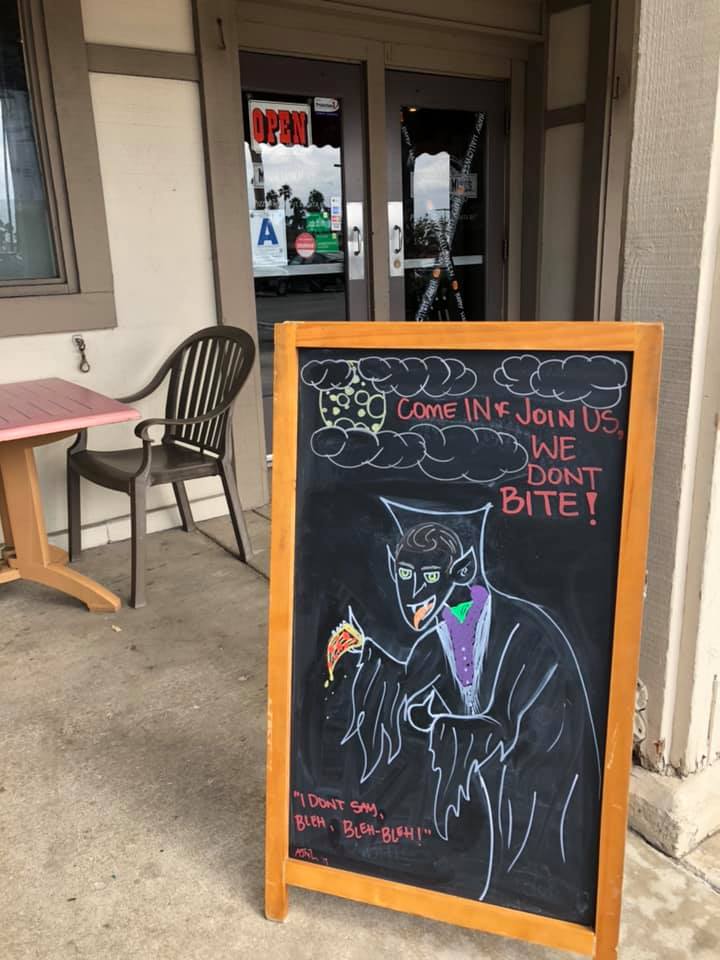 OPEN
A
COME IN & JOIN US,
WE
DONT
BITE!
"I DONT SAY,
BLEH, BLEH-BLEH!"